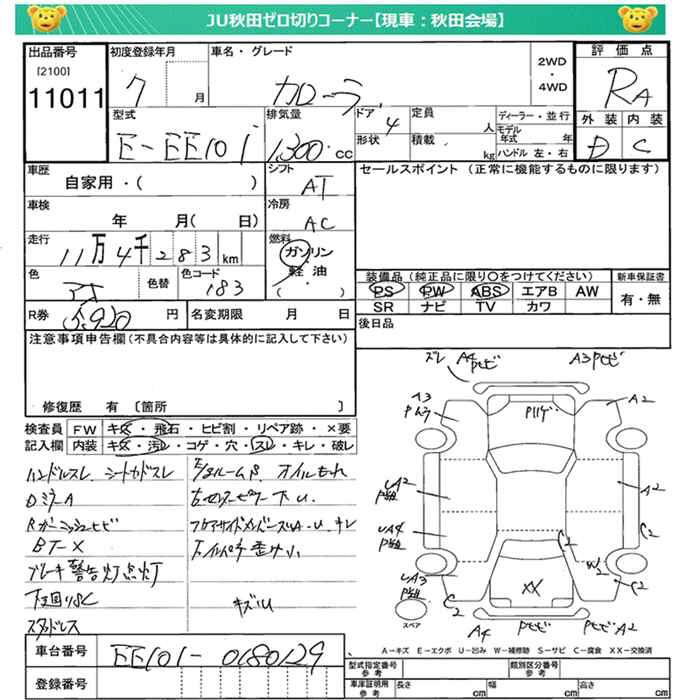 JU秋田ゼロ切りコーナー【現車：秋田会場】
出品番号 [2100] 11011
初度登録年月 7 月
車名・グレード カローラ
2WD・4WD
評価点 RA
外装 D 内装 C
型式 E-EE101
排気量 1,300 cc
ドア 4 形状
定員 人 積載 kg
ディーラー・並行
モデル年式 年
ハンドル 左・右
車歴 自家用・( )
シフト AT
セールスポイント（正常に機能するものに限ります）
車検 年 月( 日)
冷房 AC
走行 11万4千283 km
燃料 ガソリン 軽油 ( )
色 色替 色コード 183
装備品（純正品に限り〇をつけてください） 新車保証書
PS PW ABS エアB AW 有・無
SR ナビ TV カワ
R券 5,920 円 名変期限 月 日
後日品
注意事項申告欄（不具合内容等は具体的に記入して下さい）
修復歴 有 〔箇所 〕
検査員記入欄 FW キズ・飛石・ヒビ割・リペア跡・×要
内装 キズ・汚レ・コゲ・穴・スレ・キレ・破レ
ハンドルスレ シートカドスレ
オイルもれ
DミラーA
BT-X
ブレーキ警告灯点灯
下廻りSC
キズU
スタッドレス
ズレ A4 Pセビ A3 Pセビ
A3 A2
UA2 A2
UA4 C2
C1 W2
UA3 C2 XX C2
A4 Pセビ Pセビ A2
スペア
A-キズ E-エクボ U-凹み W-補修跡 S-サビ C-腐食 XX-交換済
車台番号 EE101-0180129
型式指定番号 参考 類別区分番号 参考
登録番号
車庫証明用 参考 長さ cm 幅 cm 高さ cm